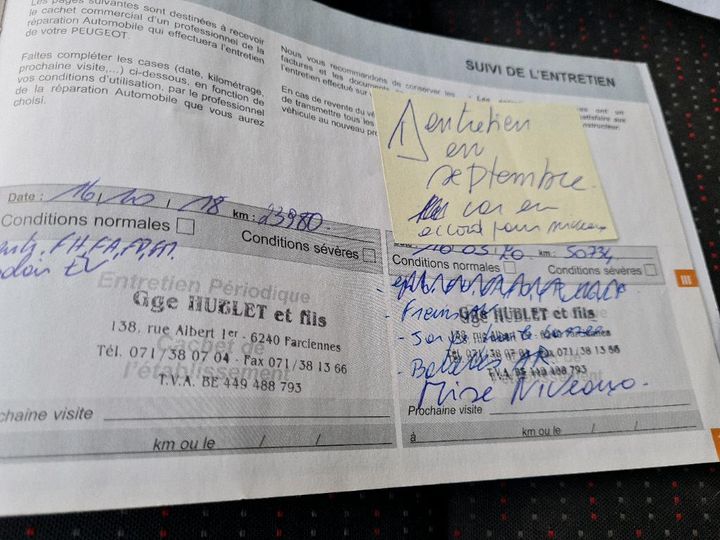 Les pages suivantes sont destinées à recevoir
le cachet commercial d'un professionnel de la
réparation Automobile qui effectuera l'entretien
de votre PEUGEOT.
Faites compléter les cases (date, kilométrage,
prochaine visite,...) ci-dessous, en fonction de
vos conditions d'utilisation, par le professionnel
de la réparation Automobile que vous aurez
choisi.
Nous vous recommandons de conserver les
factures et les documents
l'entretien effectué sur
En cas de revente du vé
de transmettre tous les
véhicule au nouveau pro
SUIVI DE L'ENTRETIEN
entretien
en
septembre
car en
accord pour
Date : 16/10/18 km : 23980
Conditions normales
Conditions sévères
FH, FA, FP,
Entretien Périodique
Gge HUBLET et fils
138, rue Albert 1er - 6240 Farciennes
Tél. 071/38 07 04 - Fax 071/38 13 66
Cachet de
l'établissement
T.V.A. BE 449 488 793
chaine visite
km ou le / /
km : 50734
Conditions normales
Conditions sévères
III
Gge HUBLET et fils
138, rue Albert 1er - 6240 Farciennes
Tél. 071/38 07 04 - Fax 071/38 13 66
T.V.A. BE 449 488 793
- Freins
- Balais AR
Mise Niveaux.
Prochaine visite
à km ou le / /